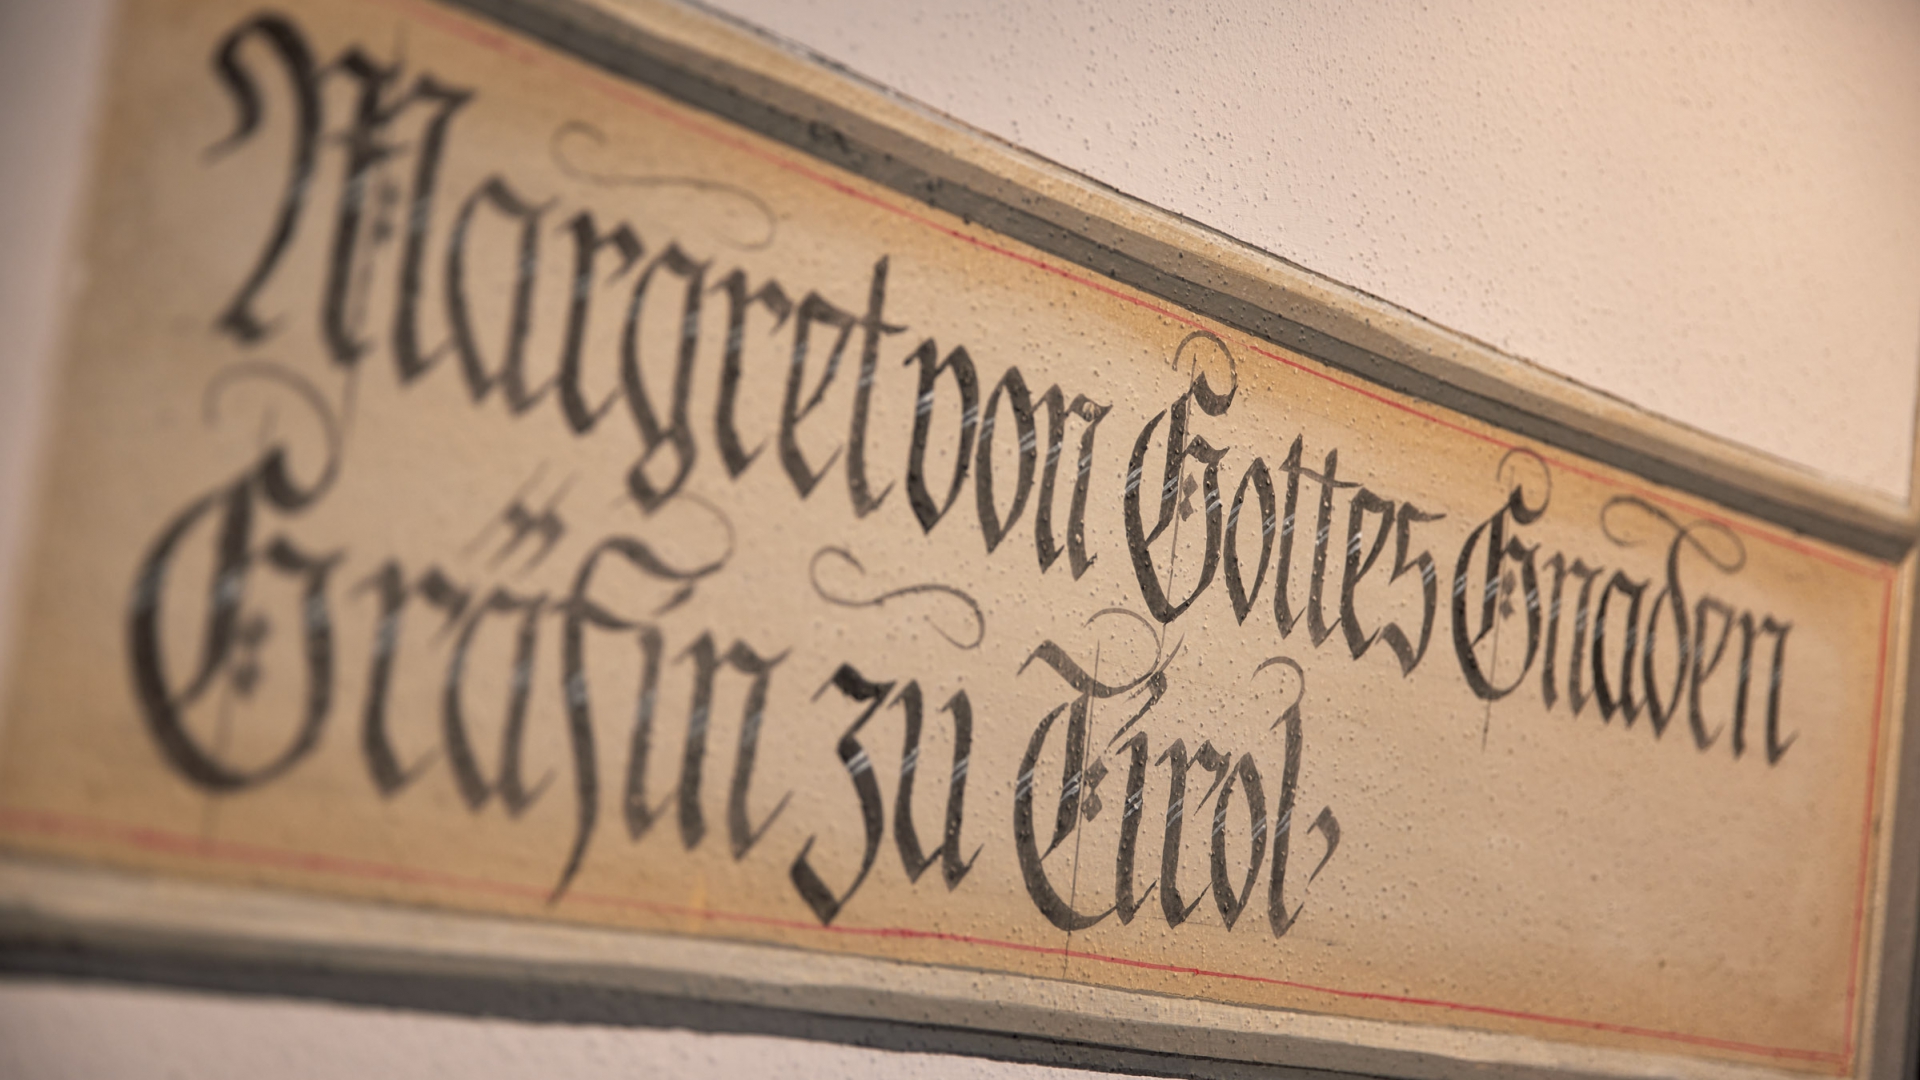 Margret von Gottes Gnaden
Gräfin zu Tirol,